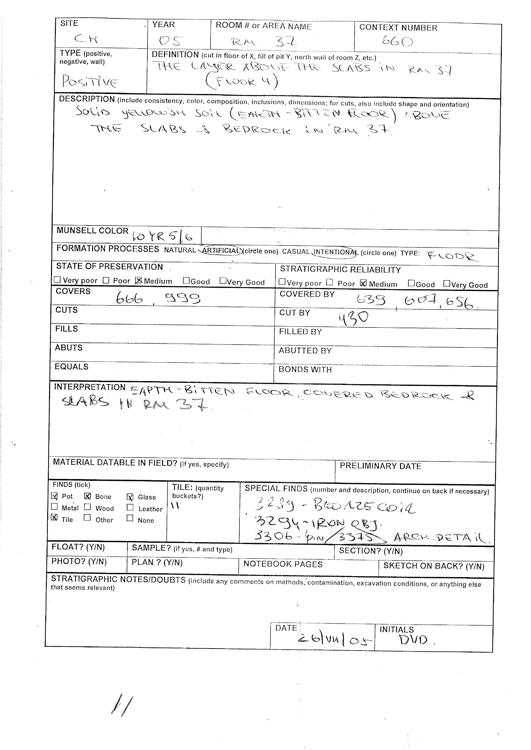 SITE YEAR ROOM # or AREA NAME CONTEXT NUMBER
CH 05 RM 37 660
TYPE (positive, negative, wall) DEFINITION (cut in floor of X, fill of pit Y, north wall of room Z, etc.)
POSITIVE THE LAYER ABOVE THE SLABS IN RM 37
(FLOOR 4)
DESCRIPTION (include consistency, color, composition, inclusions, dimensions; for cuts, also include shape and orientation)
SOLID YELLOWISH SOIL (EARTH-BITTEN FLOOR) ABOVE
THE SLABS & BEDROCK IN RM 37.
MUNSELL COLOR 10YR 5/6
FORMATION PROCESSES NATURAL ARTIFICIAL (circle one) CASUAL INTENTIONAL (circle one) TYPE: FLOOR
STATE OF PRESERVATION STRATIGRAPHIC RELIABILITY
☐ Very poor ☐ Poor ☒ Medium ☐ Good ☐ Very Good ☐ Very poor ☐ Poor ☒ Medium ☐ Good ☐ Very Good
COVERS 666, 999 COVERED BY 639, 607, 656.
CUTS CUT BY 430
FILLS FILLED BY
ABUTS ABUTTED BY
EQUALS BONDS WITH
INTERPRETATION EARTH-BITTEN FLOOR, COVERED BEDROCK &
SLABS IN RM 37.
MATERIAL DATABLE IN FIELD? (if yes, specify) PRELIMINARY DATE
FINDS (tick) TILE: (quantity buckets?) SPECIAL FINDS (number and description, continue on back if necessary)
☒ Pot ☒ Bone ☒ Glass 11 3289 - BRONZE COIN
☐ Metal ☐ Wood ☐ Leather 3294 - IRON OBJ.
☒ Tile ☐ Other ☐ None 3306 - PIN / 3375 ARCH DETAIL.
FLOAT? (Y/N) SAMPLE? (if yes, # and type) SECTION? (Y/N)
PHOTO? (Y/N) PLAN ? (Y/N) NOTEBOOK PAGES SKETCH ON BACK? (Y/N)
STRATIGRAPHIC NOTES/DOUBTS (include any comments on methods, contamination, excavation conditions, or anything else
that seems relevant)
DATE 26/VII/05 INITIALS DVD.
11